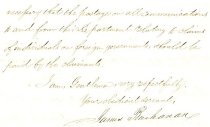 necessary that the postage on all communications
to and from this Department relating to claims
of individuals on foreign governments should be
paid by the claimants.
I am, Gentlemen, very respectfully,
Your obedient servant,
James Buchanan